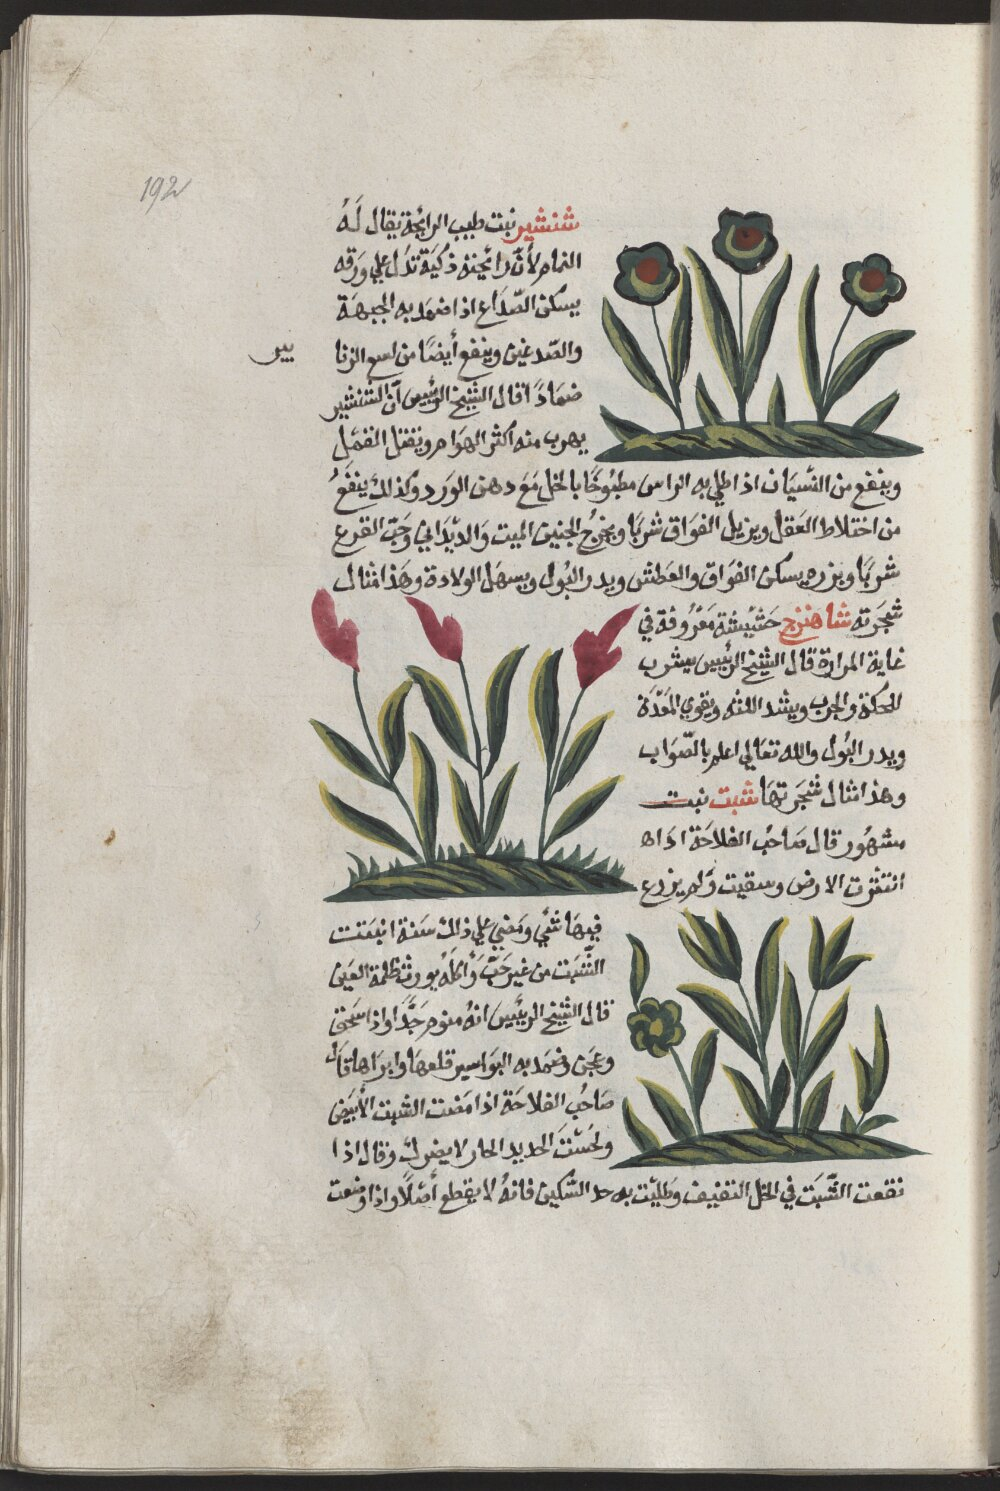 192
شنشير نبت طيب الرائحة يقال لَهُ
النمام لأنّ رائحته ذكيّة تدل علي وَرقه
يسكن الصّدَاع اذا ضمد به الجبهَة
والصّدغين وينفع أيضًا من لسع الزنا
بير
ضمَادًا قال الشيخ الرئيس أن الشنشير
يهرب منه اكثر الهوَام ويقتل القمل
وينفع من النّسيَان اذا طلي به الراس مطبُوخًا بالخل مَعَ دهن الورَد وكذلك ينفَعُ
من اختلاط العَقل ويزيل الفوَاق شربًا ويخرجُ الجنين الميت وَالديْدَاني وَحَبّ القرع
شربًا وبزره يسكن الفوَاق والعَطش ويدر البُول ويسهل الولادة وهَذا مثال
شجَرته شاهترج حَشيْشة مَعْرُوفة في
غاية المرارة قال الشيخ الرئيس يشرب
للحكة والجرب ويشد اللثه ويقوي المَعْدَة
ويدر البُول والله تعَالي اعلم بالصّوَاب
وهذا مثال شجَرتهَا شبت نبت
مشهُور قال صَاحبُ الفلاحَة اذاه
انتثرت الارض وسقيت وَلم يزرع
فيهَا شئ وَمَضي علي ذلك سَنة انبَتت
الشّبَت من غير حَبّ وَأكلهُ يورث ظلمة العَين
قال الشيخ الرئيس انهُ منوم جَدًّا واذا سَحق
وعجن وضمد به البوَاسير قلعهَا وابرَاها قال
صَاحبُ الفلاحَة اذا مَضغت الشبت الأبيَض
ولحسْت الحديد الحار لا يضرك وقال اذا
نقعت الشّبَت في الخل الثقيف وَطليْت به حد السّكين فانهُ لا يقطع أصْلًا واذا وضعت